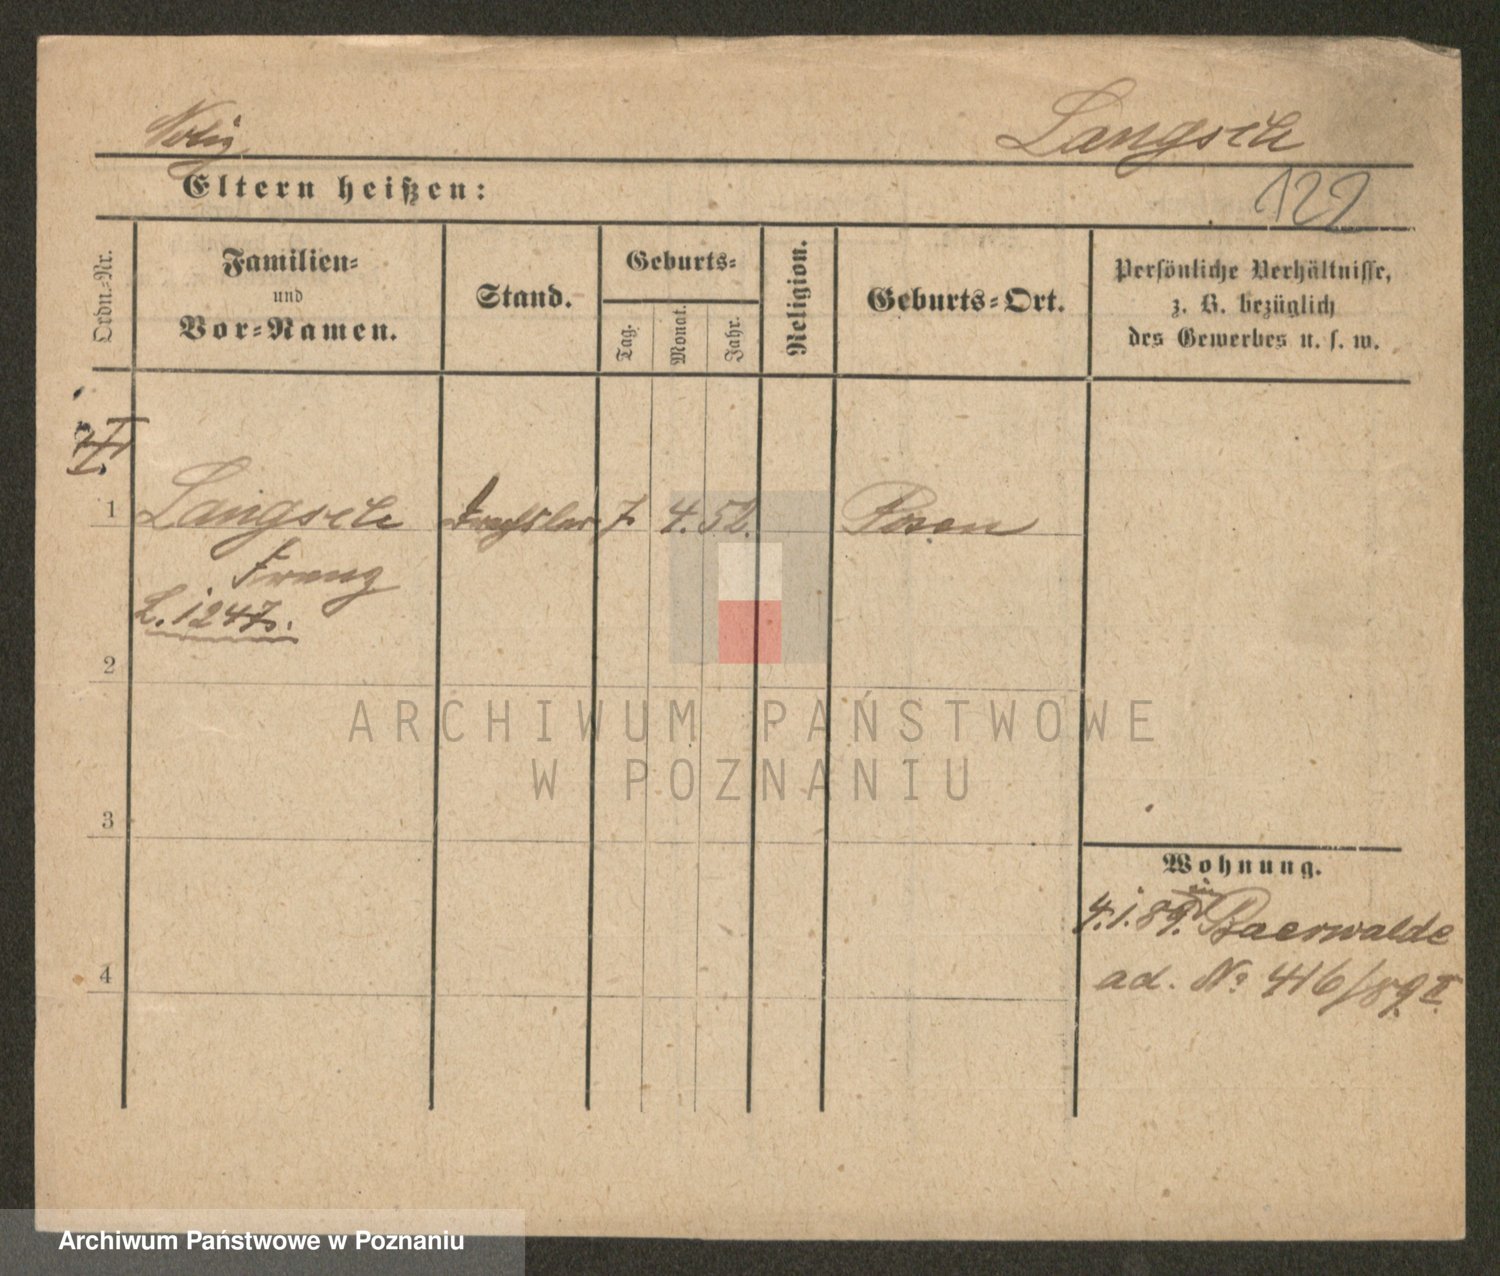 Notiz
Langsch
Eltern heißen:
122
Ordn.-Nr.
Familien-
und
Vor-Namen.
Stand.
Geburts-
Tag.
Monat.
Jahr.
Religion.
Geburts-Ort.
Persönliche Verhältnisse,
z. B. bezüglich
des Gewerbes u. s. w.
1 Langsch 7. 4. 52. Posen
Franz
L. 1247.
2
3
4
Wohnung.
4.1.89. in Baerwalde
ad. No 416/89 II.
ARCHIWUM PAŃSTWOWE
W POZNANIU
Archiwum Państwowe w Poznaniu